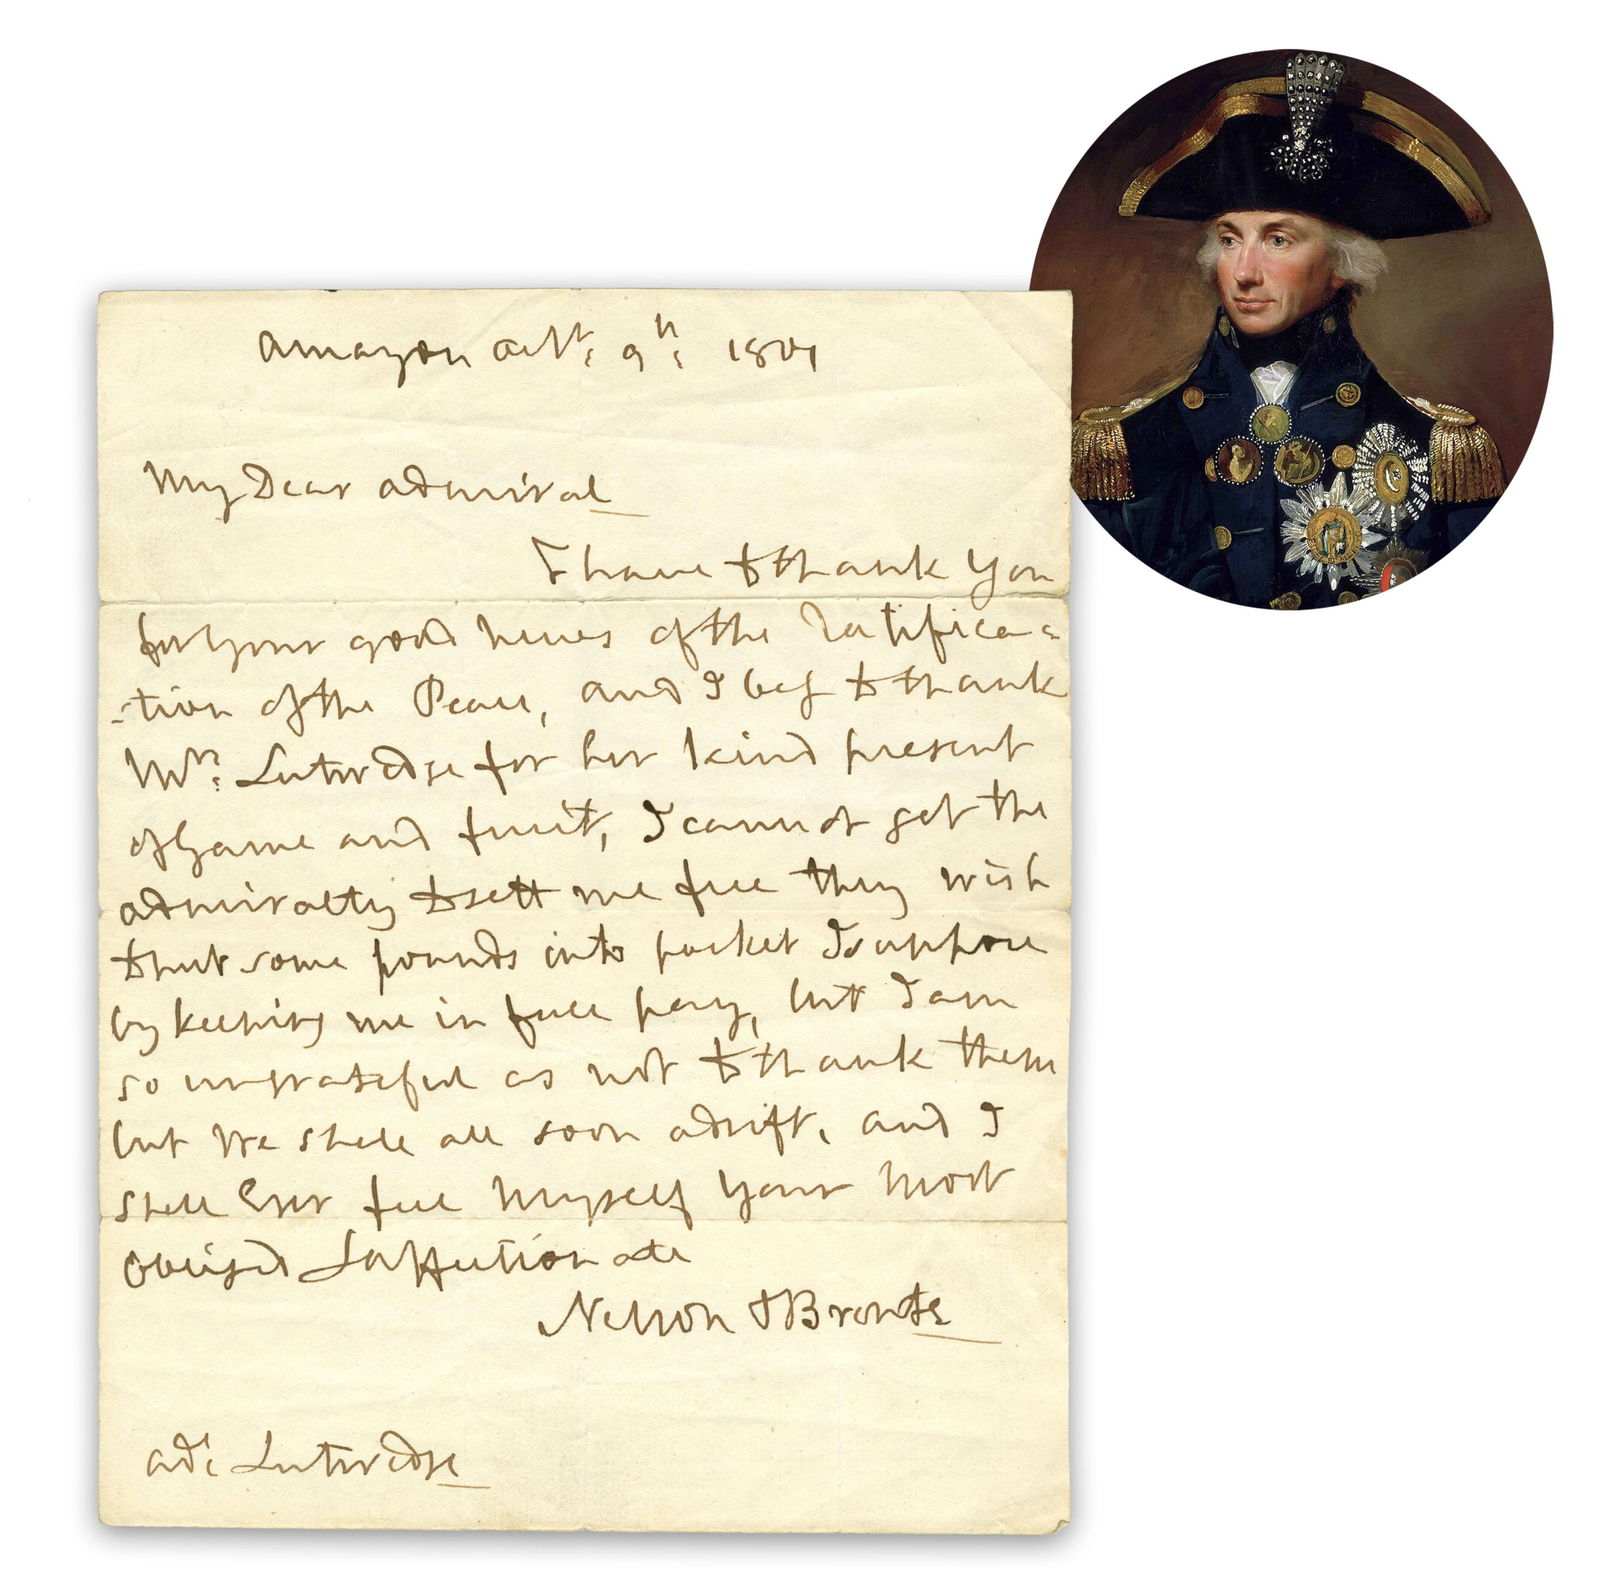 Amazon Octr: 9th: 1801
My Dear Admiral
I have to thank you
for your good news of the ratifica-
-tion of the Peace, and I beg to thank
Mrs: Lutwidge for her kind present
of Game and fruit, I cannot get the
Admiralty to sett me free they wish
to put some pounds into pocket I suppose
by keeping me in full pay, but I am
so ungrateful as not to thank them
but We shall all soon adrift, and I
shall Ever feel Myself Your Most
Obliged & affectionate
Nelson & Bronte
Adl: Lutwidge